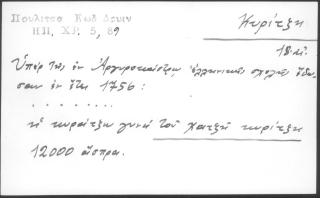 Πουλίτσα Κωδ Δρυιν
ΗΠ, ΧΡ. 5, 89
Κυρίτζη
18 αἰ.
Ὑπέρ τῆς ἐν Ἀργυροκάστρῳ ἑλληνικῆς σχολῆς ἔδω-
σαν ἐν ἔτει 1756:
. . . . . . .
ἡ κυράτζη γυνή τοῦ χατζῆ κυρίτζη
12000 ἄσπρα.